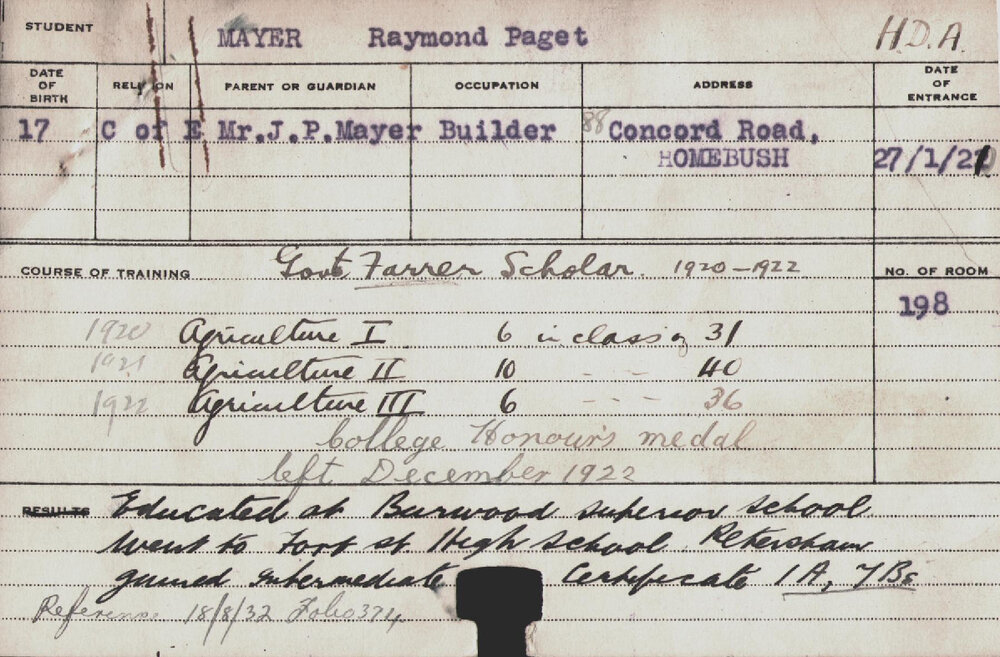 STUDENT MAYER Raymond Paget H.D.A.
DATE OF BIRTH RELIGION PARENT OR GUARDIAN OCCUPATION ADDRESS DATE OF ENTRANCE
17 C of E Mr.J.P.Mayer Builder 88 Concord Road,
HOMEBUSH 27/1/20
COURSE OF TRAINING Govt Farrer Scholar. 1920-1922 No. OF ROOM
198
1920 Agriculture I 6 in class of 31
1921 Agriculture II 10 - - - 40
1922 Agriculture III 6 - - - 36
College Honours medal
left December 1922
RESULTS Educated at Burwood Superior School
Went to Fort St High School Petersham
gained Intermediate Certificate 1A, 7Bs
Reference 18/8/32 Folio 374